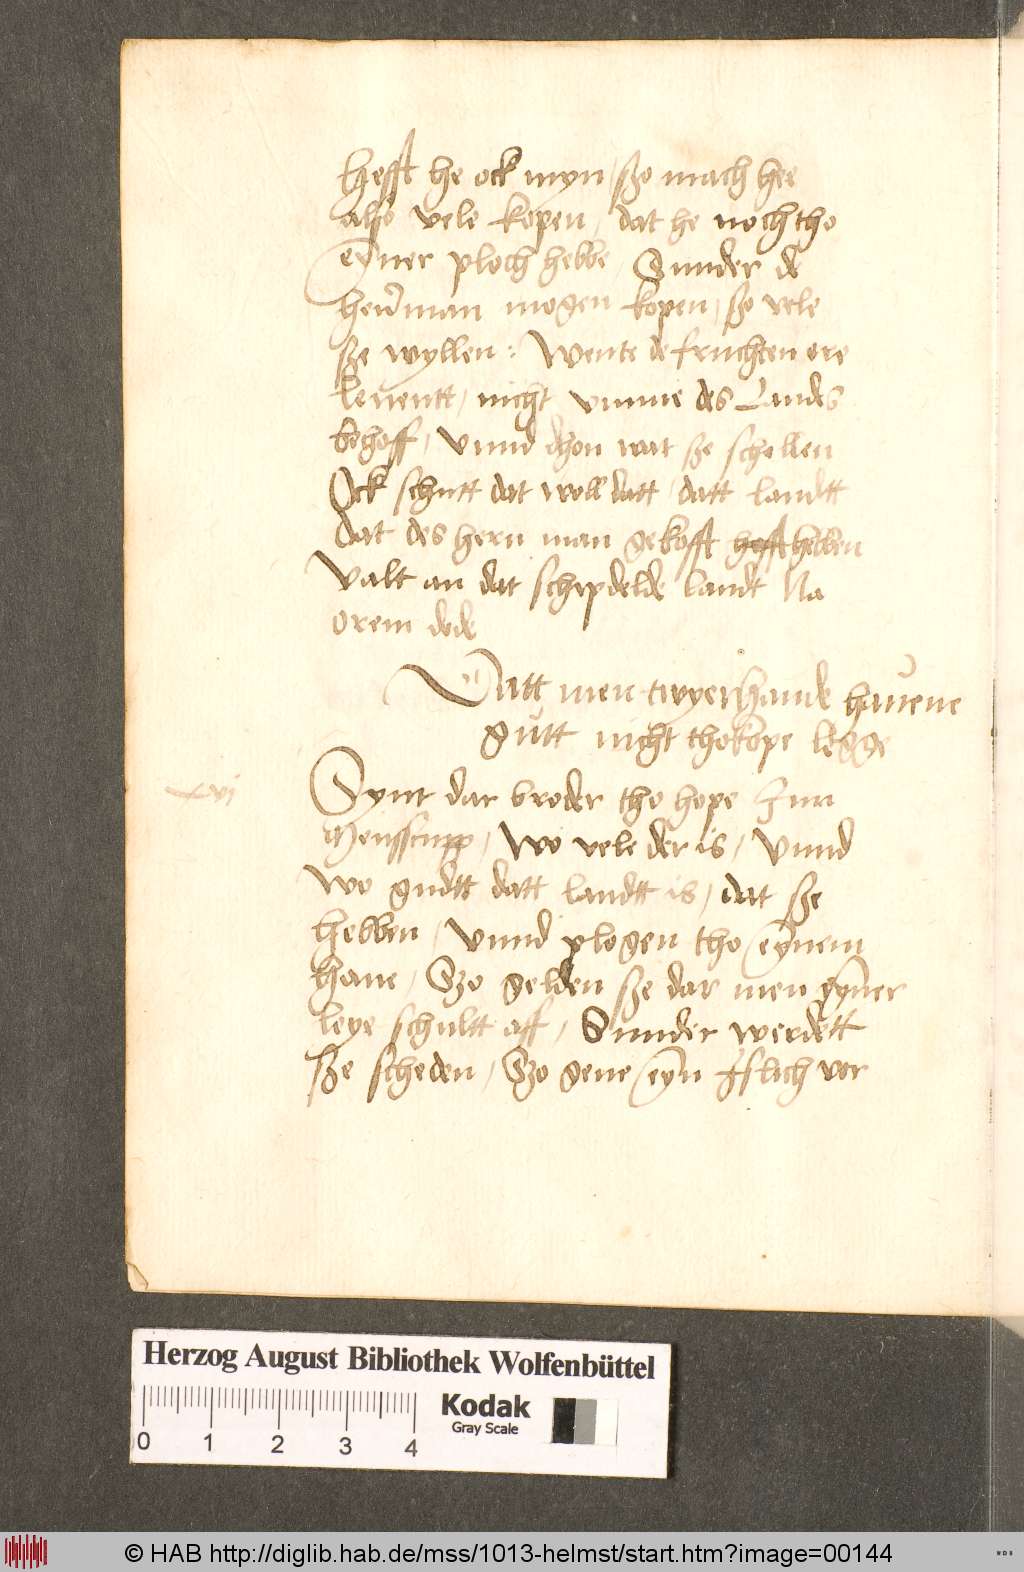 Hefft he ock myn, ßo mach hee
alßo vele kopen, dat he noch tho
eyner ploch hebbe, Sunder de
herman mogen kopen, ßo vele
ße wyllen: Wente de fruchten ere
leuentt, nicht vmme des Landes
behoff, Vnnd dhon wat ße schollen
Ock schutt dat woll datt, datt landtt
dat des hern man gekofft hefft hebben
Valt an dat schepdelde landt Na
orem dode
Datt men twyerhande hauene
gutt nicht thokope legge
xvj
Synt dar broder tho hope Inn
Meusscupp, Wo vele der is, Vnnd
wo gudtt datt landtt is, dat ße
hebben, Vnnd plogen tho eynem
haue, Szo gelden ße dar men eyner
leye schultt aff, Sunder werdett
ße scheden, Szo geue eyn Jslich vor
Herzog August Bibliothek Wolfenbüttel
Kodak
Gray Scale
0 1 2 3 4
© HAB http://diglib.hab.de/mss/1013-helmst/start.htm?image=00144